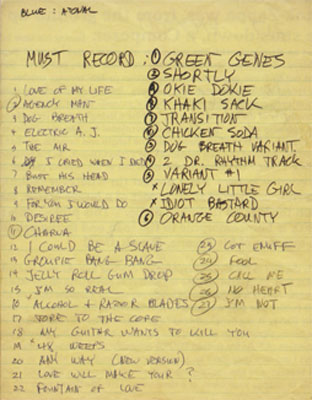 BLUE : ATONAL
MUST RECORD :
① GREEN GENES
② SHORTLY
OKIE DOKIE
KHAKI SACK
TRANSITION
CHICKEN SODA
DOG BREATH VARIANT.
2 DR. RHYTHM TRACK
VARIANT #1
x LONELY LITTLE GIRL
x IDIOT BASTARD
⑥ ORANGE COUNTY
1 LOVE OF MY LIFE
② AGENCY MAN
3 DOG BREATH
4 ELECTRIC A.J.
5 THE AIR
6 I CRIED WHEN I
7 BUST HIS HEAD
8 REMEMBER
9 FOR YOU I WOULD DO
10 DESIREE
⑪ CHARVA
12 I COULD BE A SLAVE
13 GROUPIE BANG BANG
14 JELLY ROLL GUM DROP
15 I'M SO REAL
16 ALCOHOL + RAZOR BLADES
17 TORE TO THE CORE
18 MY GUITAR WANTS TO KILL YOU
20 ANY WAY (NEW VERSION)
21 LOVE WILL MAKE YOUR ?
22 FOUNTAIN OF LOVE
GOT ENUFF
FOOL
CALL ME
NO HEART
㉗ I'M NOT